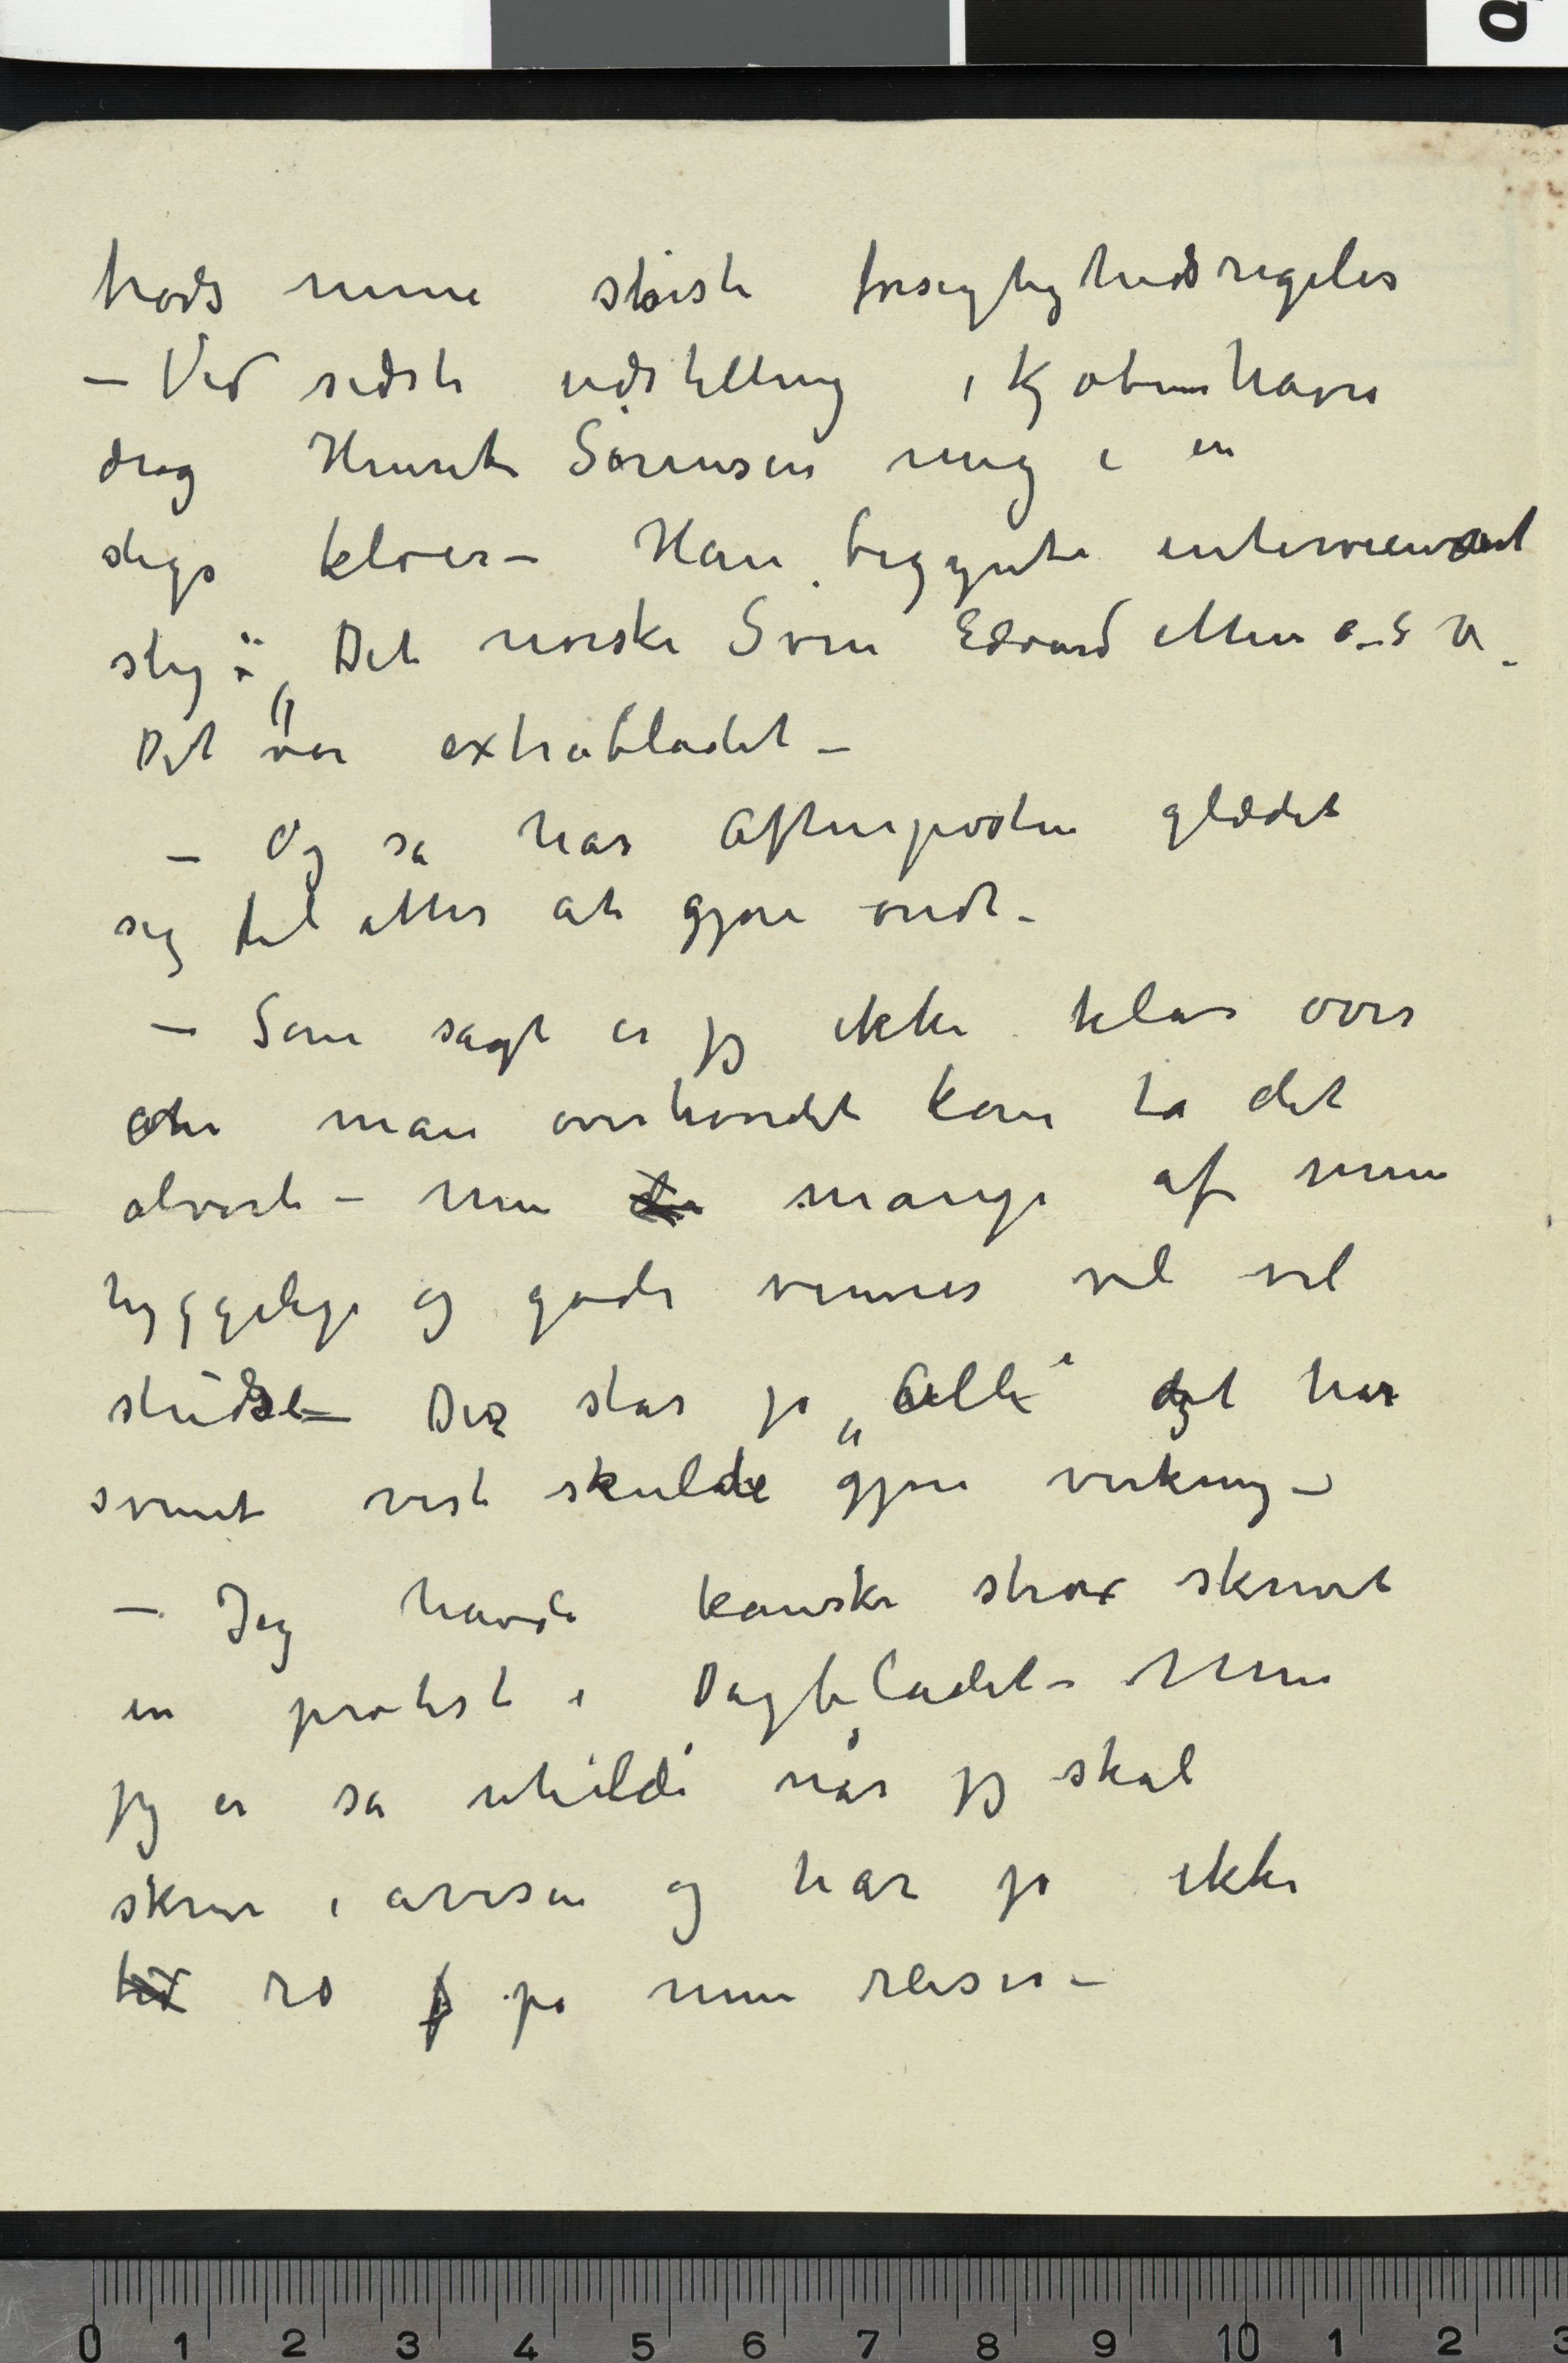 trods mine største forsigtighedsregeler
– Ved sidste udstilling i Kjøbenhavn
drog Henrik Sørensen mig i en
sligs kløer – Han begynte interviewet
slig: „Det norske Svin Edvard Mun o. s v.
Det var extrabladet –
– Og så har Aftenposten glædet
sig til atter at gjøre ondt –
– Som sagt er jeg ikke klar over
om man overhovedet kan ta det
alvorli – Men mange af mine
hyggelige og gode venner vil vel
studse – Der står jo „Alle“ det har
svinet vist skulde gjøre virkning –
– Jeg havde kanske strax skrevet
en protest i Dagbladet – Men
jeg er så uheldi når jeg skal
skrive i avisen og har jo ikke
tid ro på mine reiser –
0 1 2 3 4 5 6 7 8 9 10 1 2 3